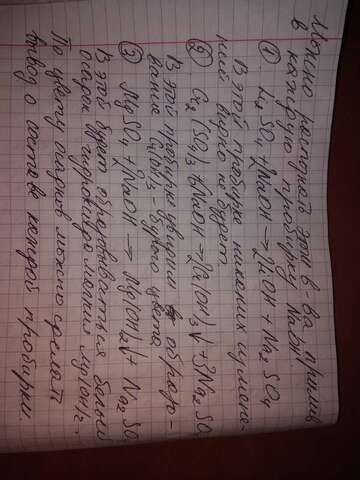 Можно распознать эти в-ва, прилив
в каждую пробирку NaOH.
① Li2SO4 + 2NaOH → 2LiOH + Na2SO4
В этой пробирке никаких измене-
ний видно не будет.
② (SO4)3 + 6NaOH → 2 (OH)3↓ + 3Na2SO4
В этой пробирке увидим образо-
вание (OH)3 - бурого цвета
③ MgSO4 + 2NaOH → Mg(OH)2↓ + Na2SO4
В этой будет образовываться белый
осадок гидроксида магния Mg(OH)2.
По цвету осадков можно сделать
вывод о составе каждой пробирки.